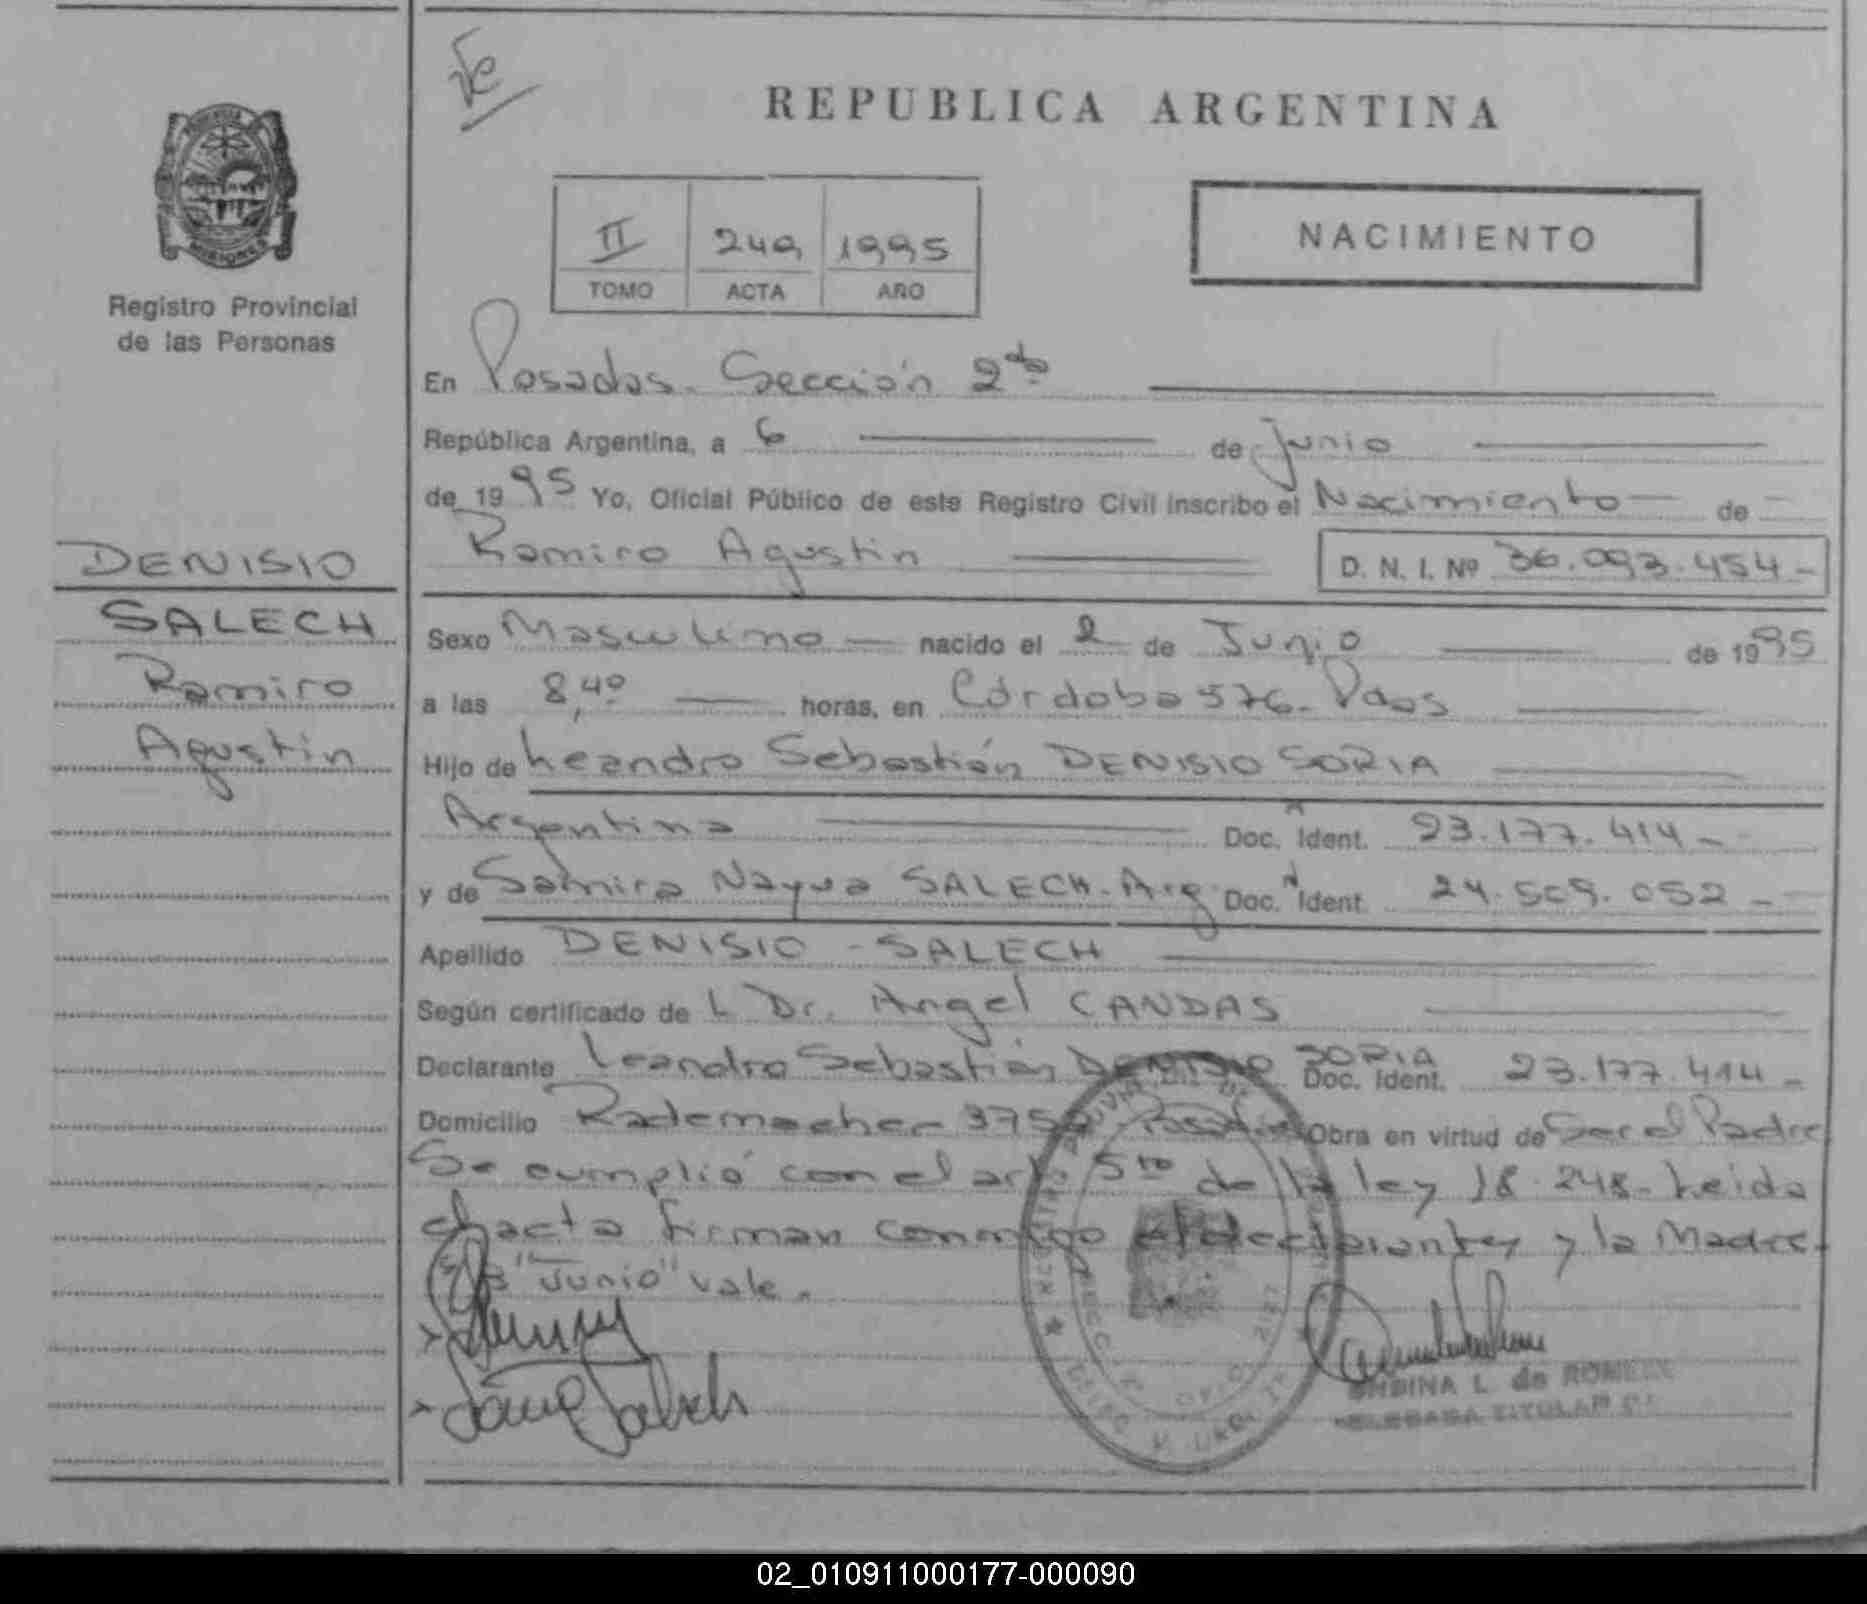 REPUBLICA ARGENTINA
II 249 1995
TOMO ACTA AÑO
NACIMIENTO
Registro Provincial
de las Personas
DENISIO
SALECH
Ramiro
Agustin
En Posadas. Sección 2da
República Argentina, a 6 de Junio
de 1995 Yo, Oficial Público de este Registro Civil inscribo el Nacimiento de
Ramiro Agustin D. N. I. Nº 36.093.454-
Sexo Masculino nacido el 2 de Junio de 1995
a las 8,40 horas, en Córdoba 576- Pdas
Hijo de Leandro Sebastián DENISIO SORIA
Argentina Doc. Ident. 23.177.414-
y de Samira Nayua SALECH- Arg Doc. Ident. 24.509.052-
Apellido DENISIO - SALECH
Según certificado de L Dr. Angel CANDAS
Declarante Leandro Sebastián DENISIO SORIA Doc. Ident. 23.177.414-
Domicilio Rademacher 375 Posadas Obra en virtud de Ser el Padre
Se cumplió con el art 5to de la ley 18.248- Leida
el acta firman conmigo el declarante y la Madre-
"Junio" vale.
L. de ROMERO
TITULAR
02_010911000177-000090